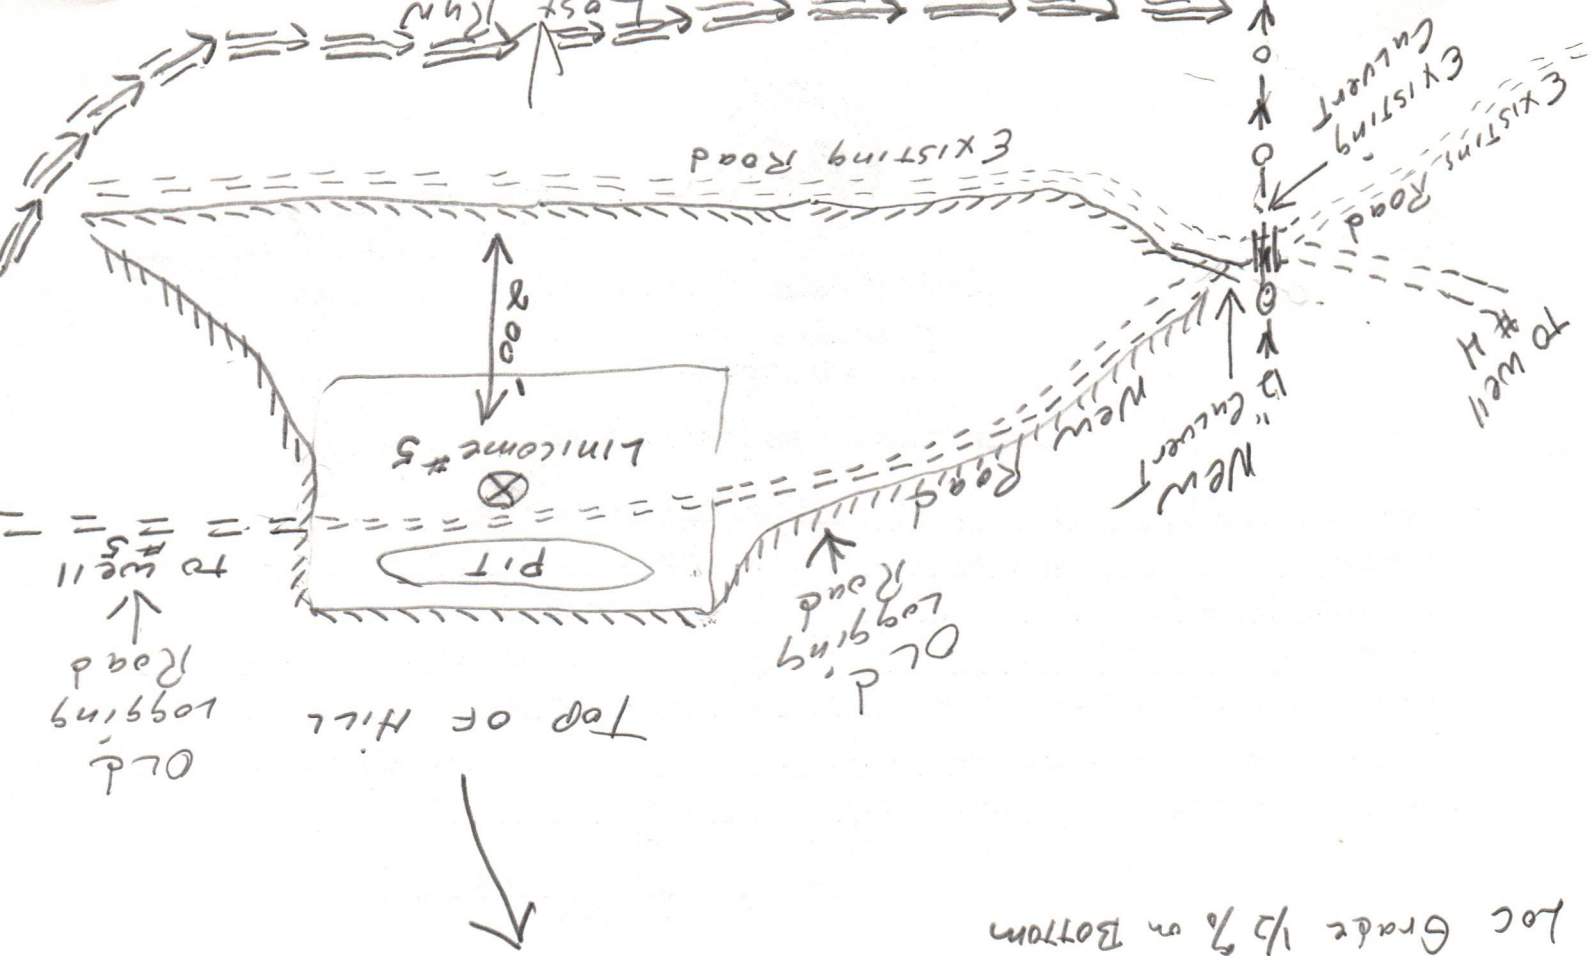 Loc Grade 1/2 % on Bottom
OLd
Logging
Road
Top OF HiLL
OLd
Logging
Road
PiT
To well
#5
Linicome #5
200'
New
Road
New
12" Culvert
To well
#4
Existing
Road
Existing
Culvert
Existing Road
Lost
Run